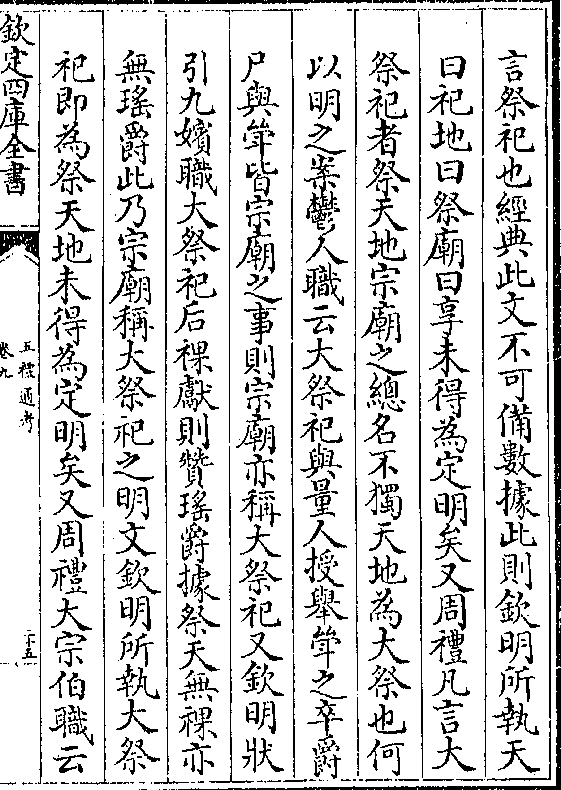 言祭祀也經典此文不可備數據此則欽明所執天
曰祀地曰祭廟曰享未得為定明矣又周禮凡言大
祭祀者祭天地宗廟之總名不獨天地為大祭也何
以明之案鬱人職云大祭祀與量人授舉斝之卒爵
尸與斝皆宗廟之事則宗廟亦稱大祭祀又欽明狀
引九嬪職大祭祀后祼獻則贊瑤爵據祭天無祼亦
無瑤爵此乃宗廟稱大祭祀之明文欽明所執大祭
祀即為祭天地未得為定明矣又周禮大宗伯職云
欽定四庫全書
五禮通考
卷九
二十五